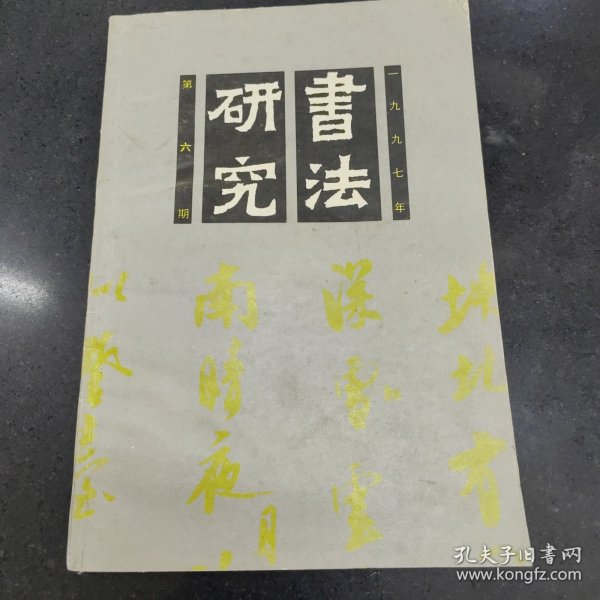 一九九七年
書法
研究
第六期
南晴夜月
孔夫子旧書网
www.kongfz.com